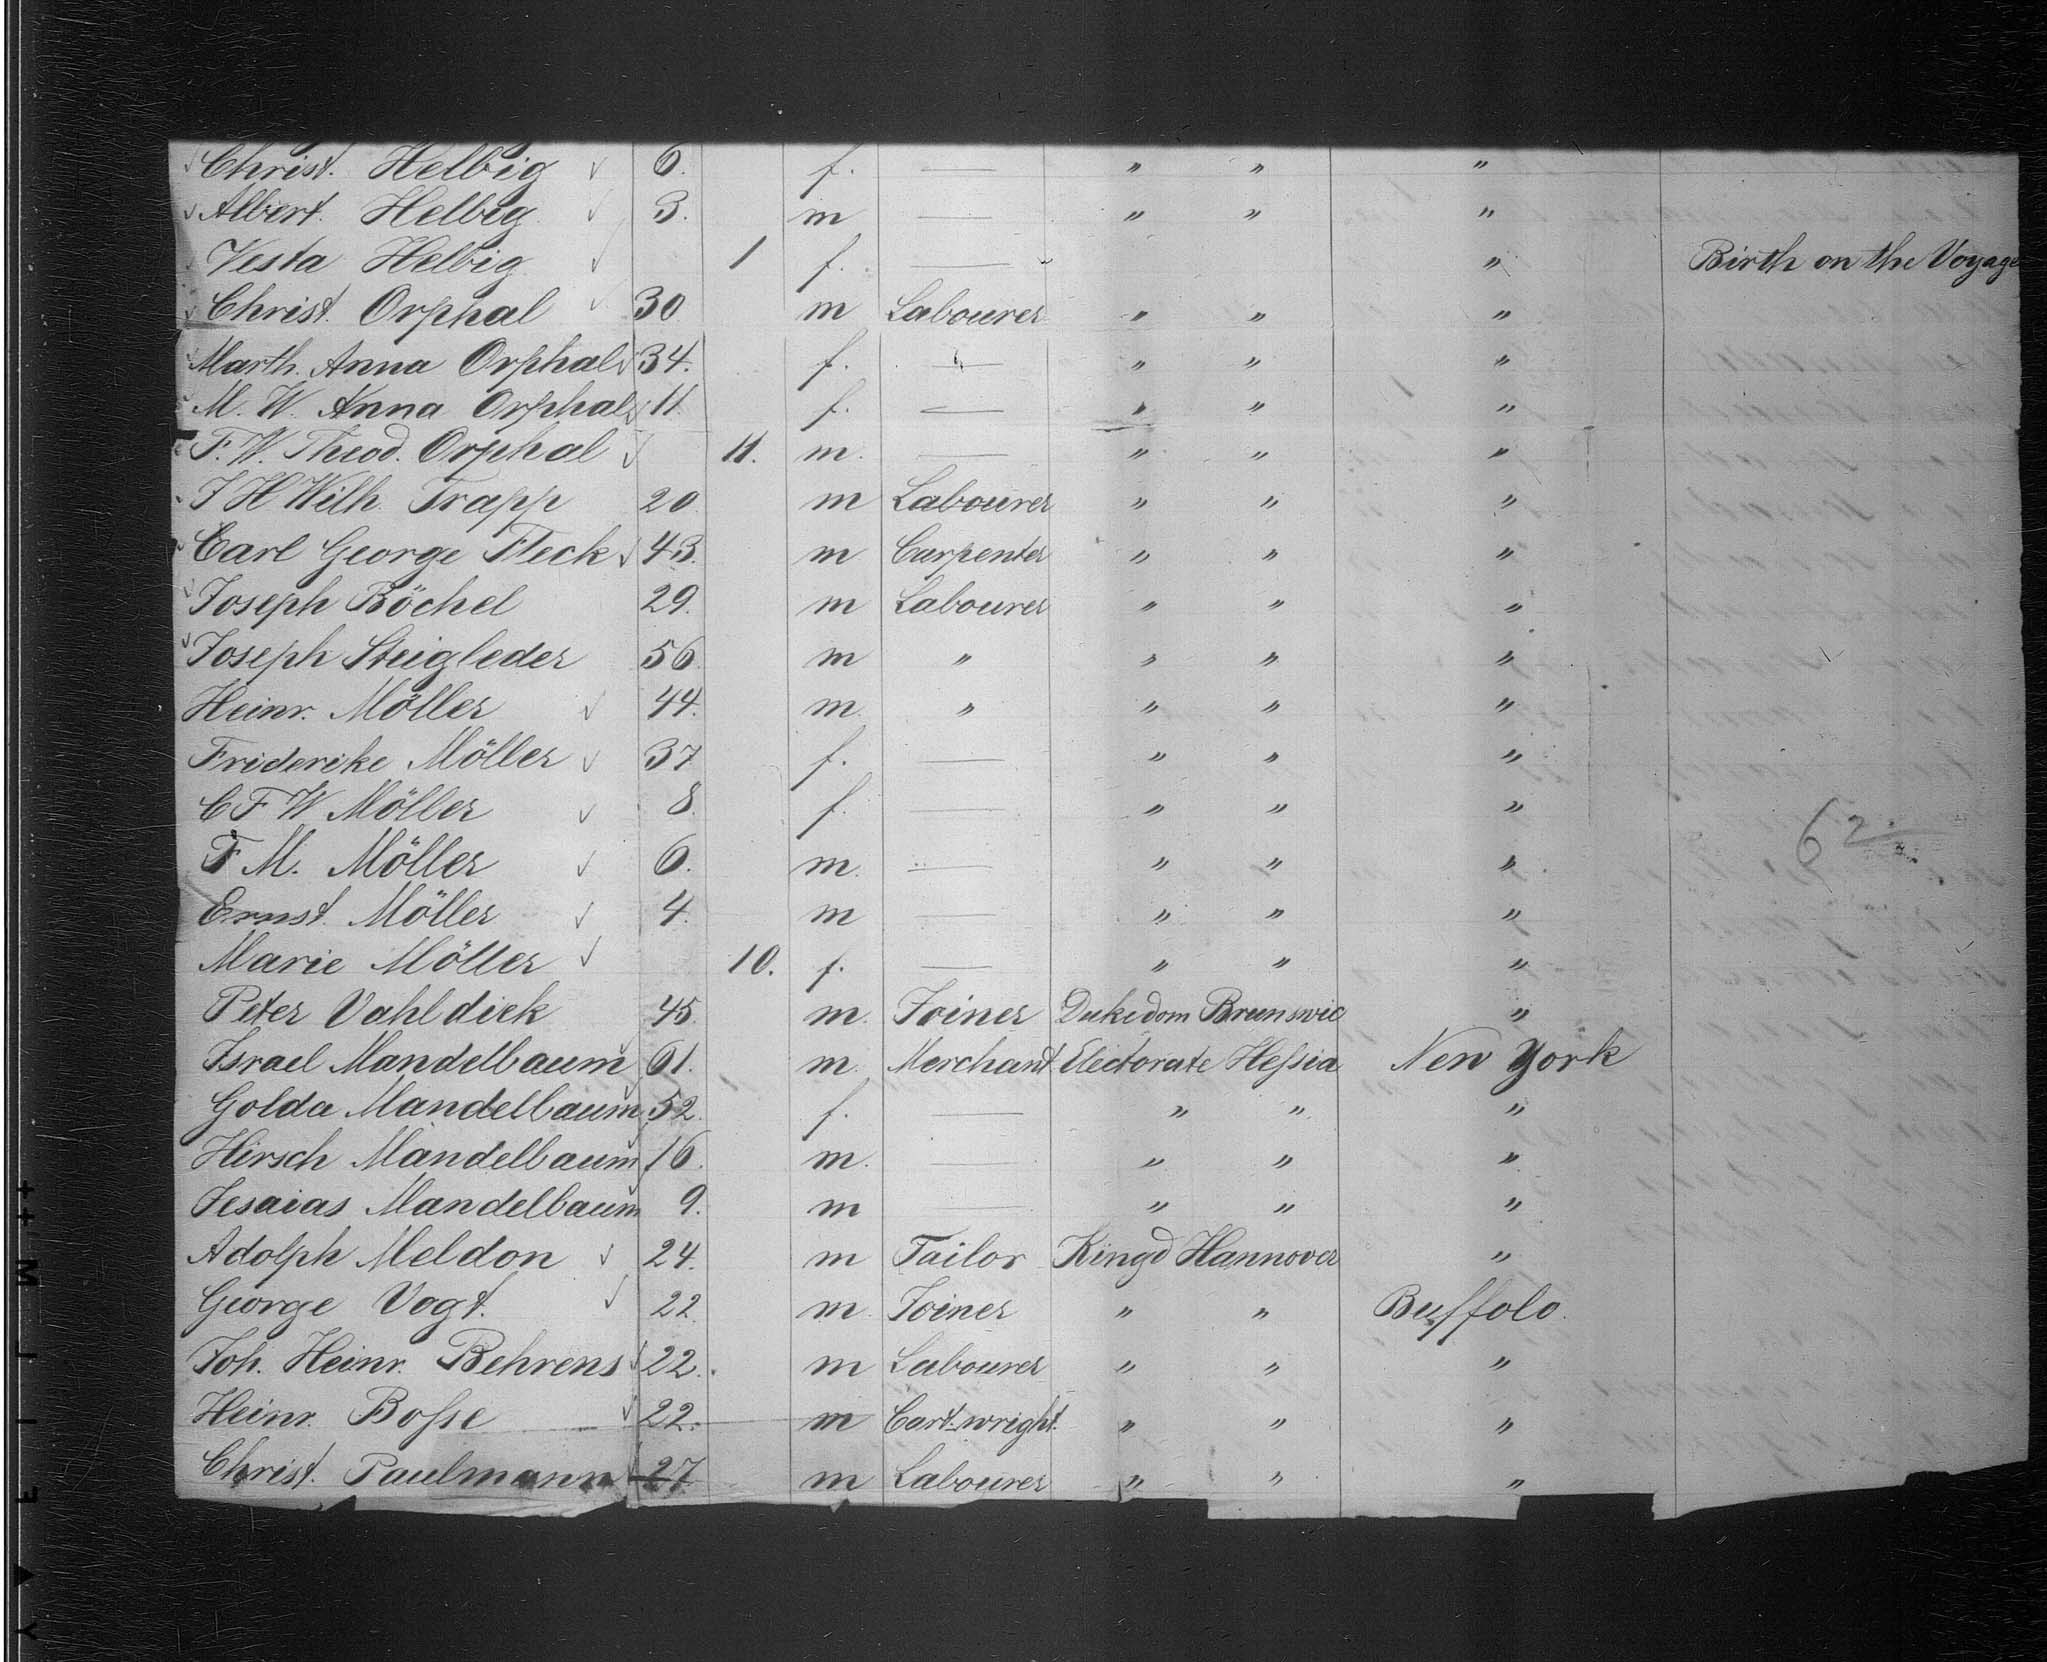 Christ. Helbig 6. f. — " " "
Albert. Helbig 3. m — " " "
Vesta Helbig 1 f. — " Birth on the Voyage
Christ. Orphal 30 m Labourer " " "
Marth. Anna Orphal 34. f. — " " "
M. W. Anna Orphal 11. f. — " " "
F. W. Theod. Orphal 11. m. — " " "
J H Wilh. Trapp 20 m Labourer " " "
Carl George Fleck 43. m Carpenter " " "
Joseph Böchel 29. m Labourer " " "
Joseph Steigleder 56 m " " " "
Heinr. Möller 44. m. " " " "
Friderike Möller 37 f. — " " "
C F W Möller 8. f. — " " "
F M. Möller 6. m. — " " " 62
Ernst. Möller 4. m — " " "
Marie Möller 10. f. — " " "
Peter Vahldiek 45. m. Joiner Dukedom Brunswic "
Israel Mandelbaum 61. m. Merchant Electorate Heſsia New York
Golda Mandelbaum 52. f. — " " "
Hirsch Mandelbaum 16. m. — " " "
Jesaias Mandelbaum 9. m — " " "
Adolph Meldon 24. m Tailor Kingd Hannover "
George Vogt. 22. m. Joiner " " Buffolo.
Joh. Heinr. Behrens 22. m Labourer " " "
Heinr. Boſse 22. m Cart-wright. " " "
Christ. Paulmann 27. m Labourer " " "